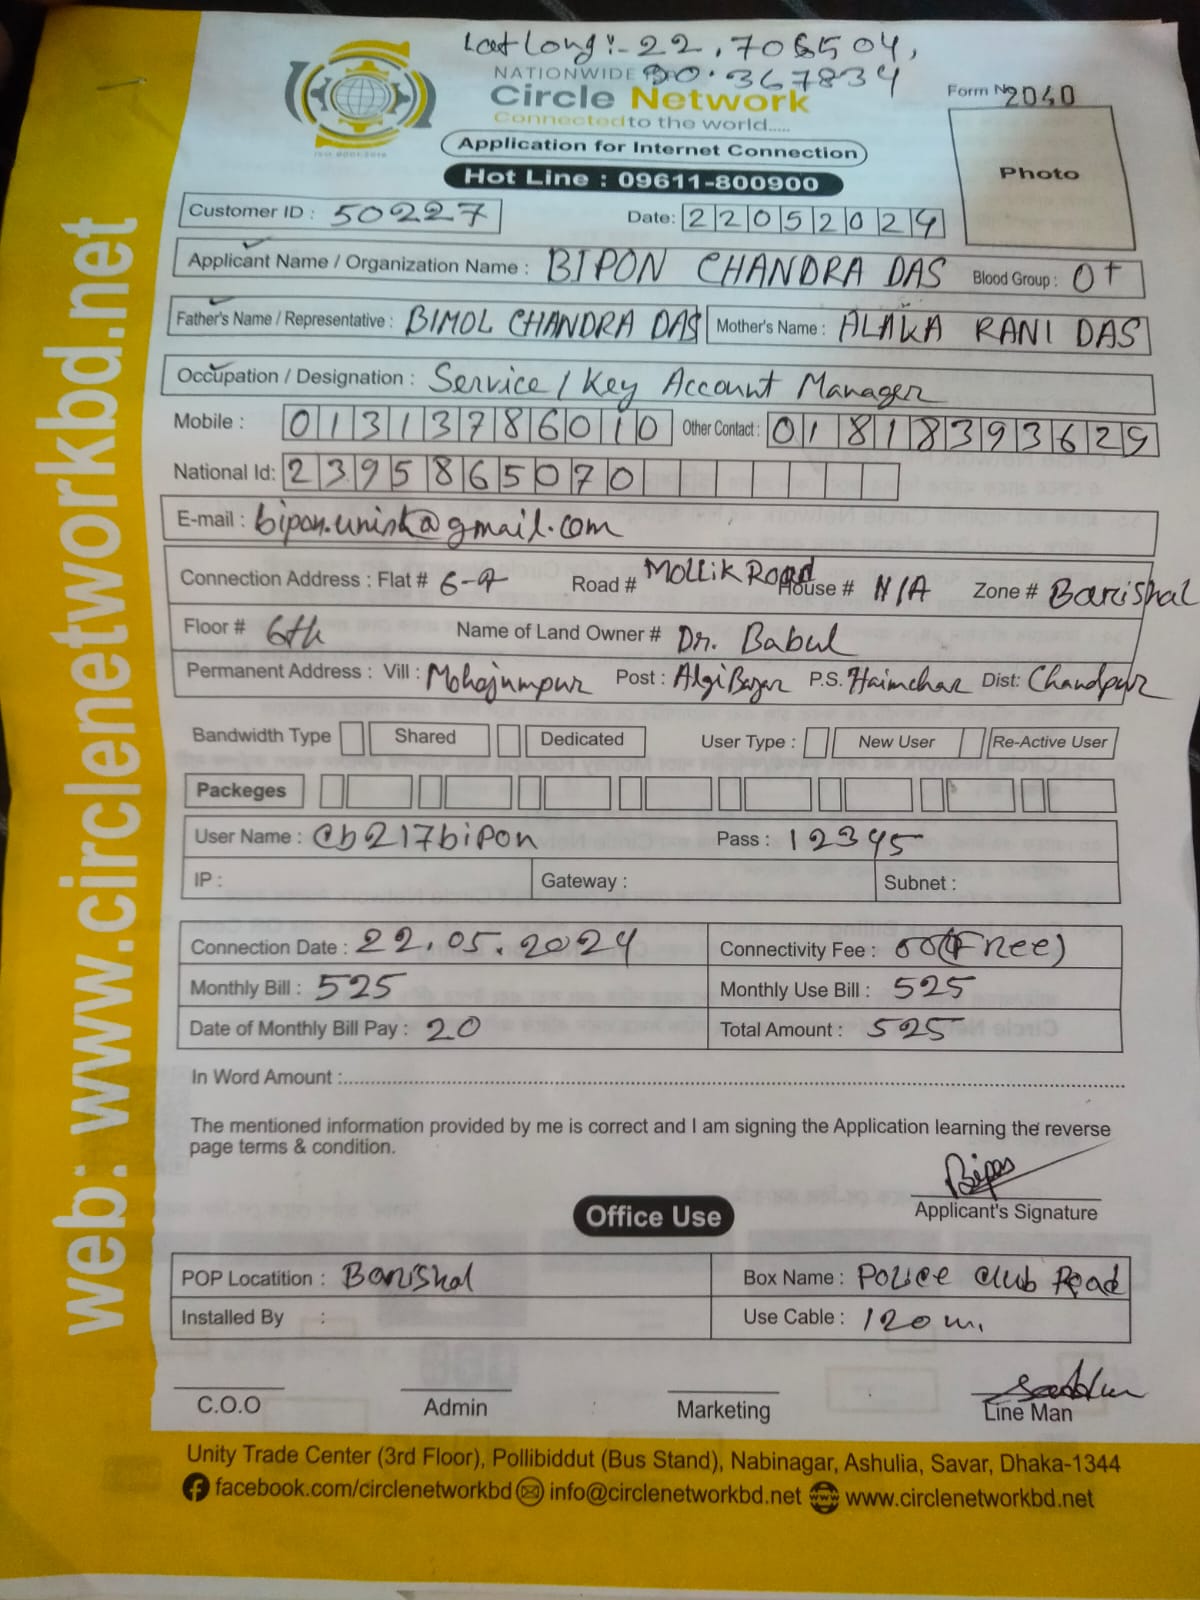 Lat Long :- 22.706504,
90.367834
NATIONWIDE
Circle Network
Connected to the world.....
Form No 2040
Application for Internet Connection
Photo
Hot Line : 09611-800900
Customer ID : 50227
Date: 22052024
Applicant Name / Organization Name : BIPON CHANDRA DAS Blood Group : O+
Father's Name / Representative : BIMOL CHANDRA DAS Mother's Name : ALAKA RANI DAS
Occupation / Designation : Service / Key Account Manager
Mobile : 01313786010 Other Contact : 01818393629
National Id: 2395865070
E-mail : bipon.unisk@gmail.com
Connection Address : Flat # 6-A Road # Mollik Road House # N/A Zone # Barishal
Floor # 6th Name of Land Owner # Dr. Babul
Permanent Address : Vill : Mohajumpur Post : Algi Bazar P.S. Haimchar Dist: Chandpur
Bandwidth Type Shared Dedicated User Type : New User Re-Active User
Packeges
User Name : @b217bipon Pass : 12345
IP : Gateway : Subnet :
Connection Date : 22.05.2024 Connectivity Fee : 00 (Free)
Monthly Bill : 525 Monthly Use Bill : 525
Date of Monthly Bill Pay : 20 Total Amount : 525
In Word Amount :
The mentioned information provided by me is correct and I am signing the Application learning the reverse
page terms & condition.
Bipon
Applicant's Signature
Office Use
POP Locatition : Barishal Box Name : Police Club Road
Installed By : Use Cable : 120 m.
C.O.O Admin Marketing Line Man
Unity Trade Center (3rd Floor), Pollibiddut (Bus Stand), Nabinagar, Ashulia, Savar, Dhaka-1344
facebook.com/circlenetworkbd info@circlenetworkbd.net www.circlenetworkbd.net
web: www.circlenetworkbd.net